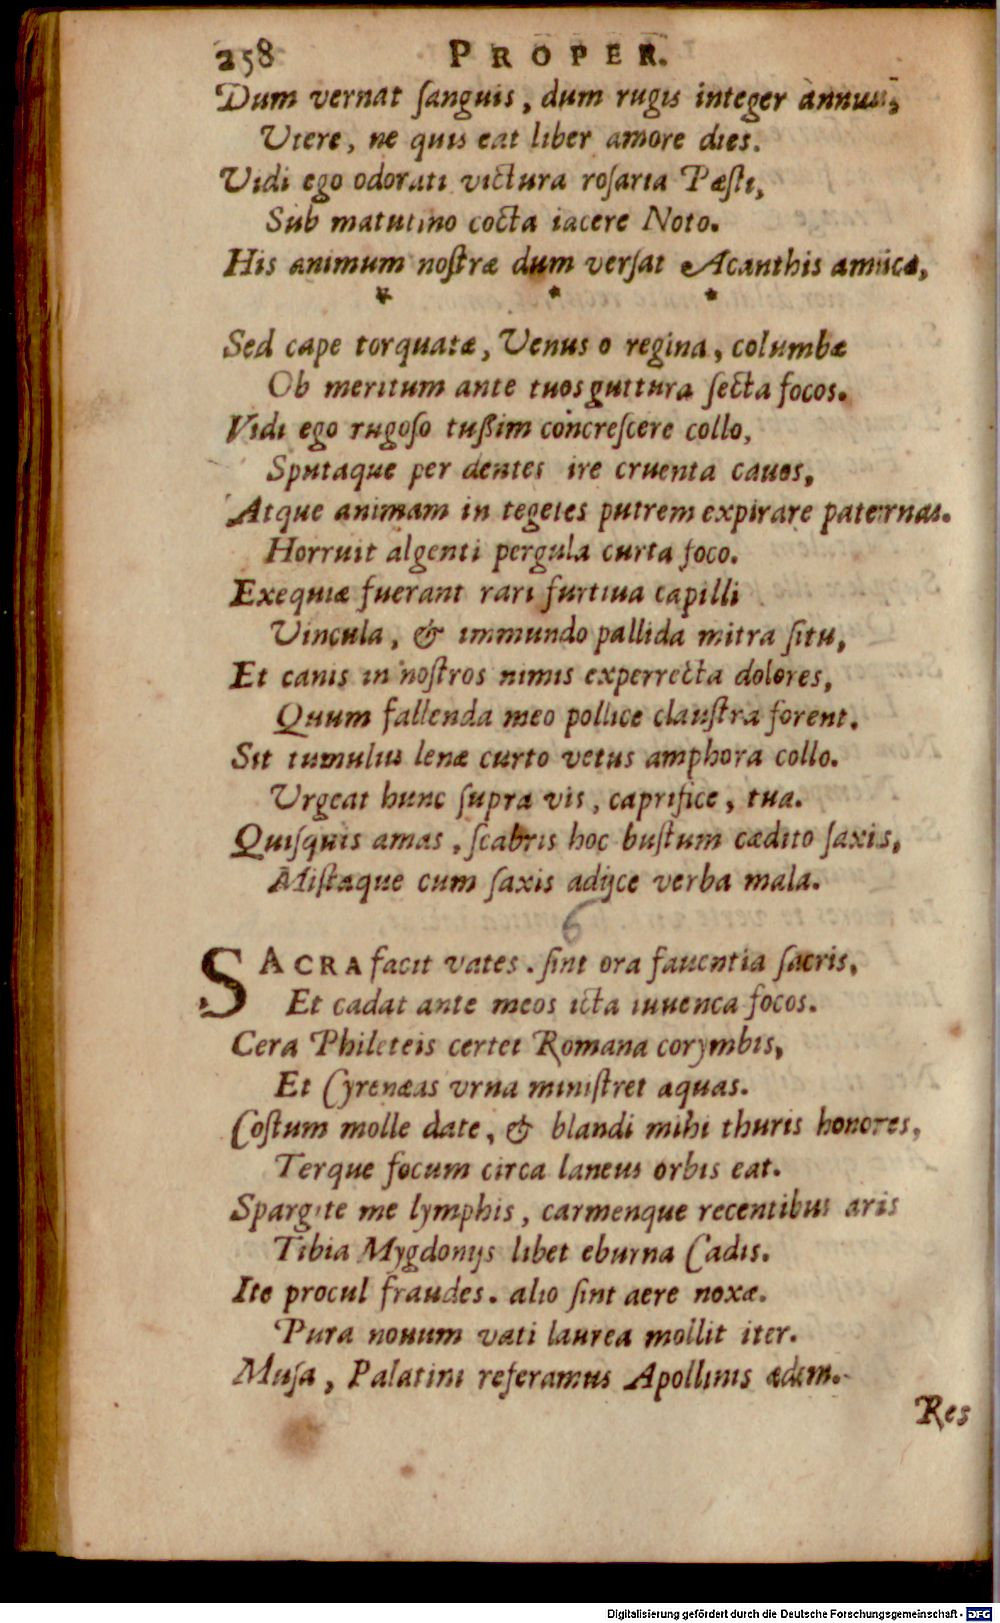 258 PROPER.
Dum vernat ſanguis, dum rugis integer annus,
Utere, ne quis eat liber amore dies.
Vidi ego odorati victura roſaria Pæſti,
Sub matutino cocta iacere Noto.
His animum noſtræ dum verſat Acanthis amicæ,
* * *
Sed cape torquatæ, Venus o regina, columbæ
Ob meritum ante tuos guttura ſecta focos.
Vidi ego rugoſo tußim concreſcere collo,
Sputaque per dentes ire cruenta cauos,
Atque animam in tegetes putrem expirare paternas.
Horruit algenti pergula curta foco.
Exequiæ fuerant rari furtiua capilli
Vincula, & immundo pallida mitra ſitu,
Et canis in noſtros nimis experrecta dolores,
Quum fallenda meo pollice clauſtra forent.
Sit tumulus lenæ curto vetus amphora collo.
Urgeat hunc ſupra vis, caprifice, tua.
Quiſquis amas, ſcabris hoc buſtum cædito ſaxis,
Miſtaque cum ſaxis adijce verba mala.
6
SACRA facit vates. ſint ora fauentia ſacris,
Et cadat ante meos icta iuuenca focos.
Cera Phileteis certet Romana corymbis,
Et Cyrenæas vrna miniſtret aquas.
Coſtum molle date, & blandi mihi thuris honores,
Terque focum circa laneus orbis eat.
Spargite me lymphis, carmenque recentibus aris
Tibia Mygdonijs libet eburna Cadis.
Ite procul fraudes. alio ſint aere noxæ.
Pura nouum vati laurea mollit iter.
Muſa, Palatini referamus Apollinis ædem.
Res
Digitalisierung gefördert durch die Deutsche Forschungsgemeinschaft - DFG